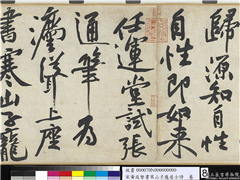 歸源知自性
自性即如来
任運堂試張
通筆為
灋聳上座
書寒山子龐
宋黃庭堅書寒山子龐居士詩 卷